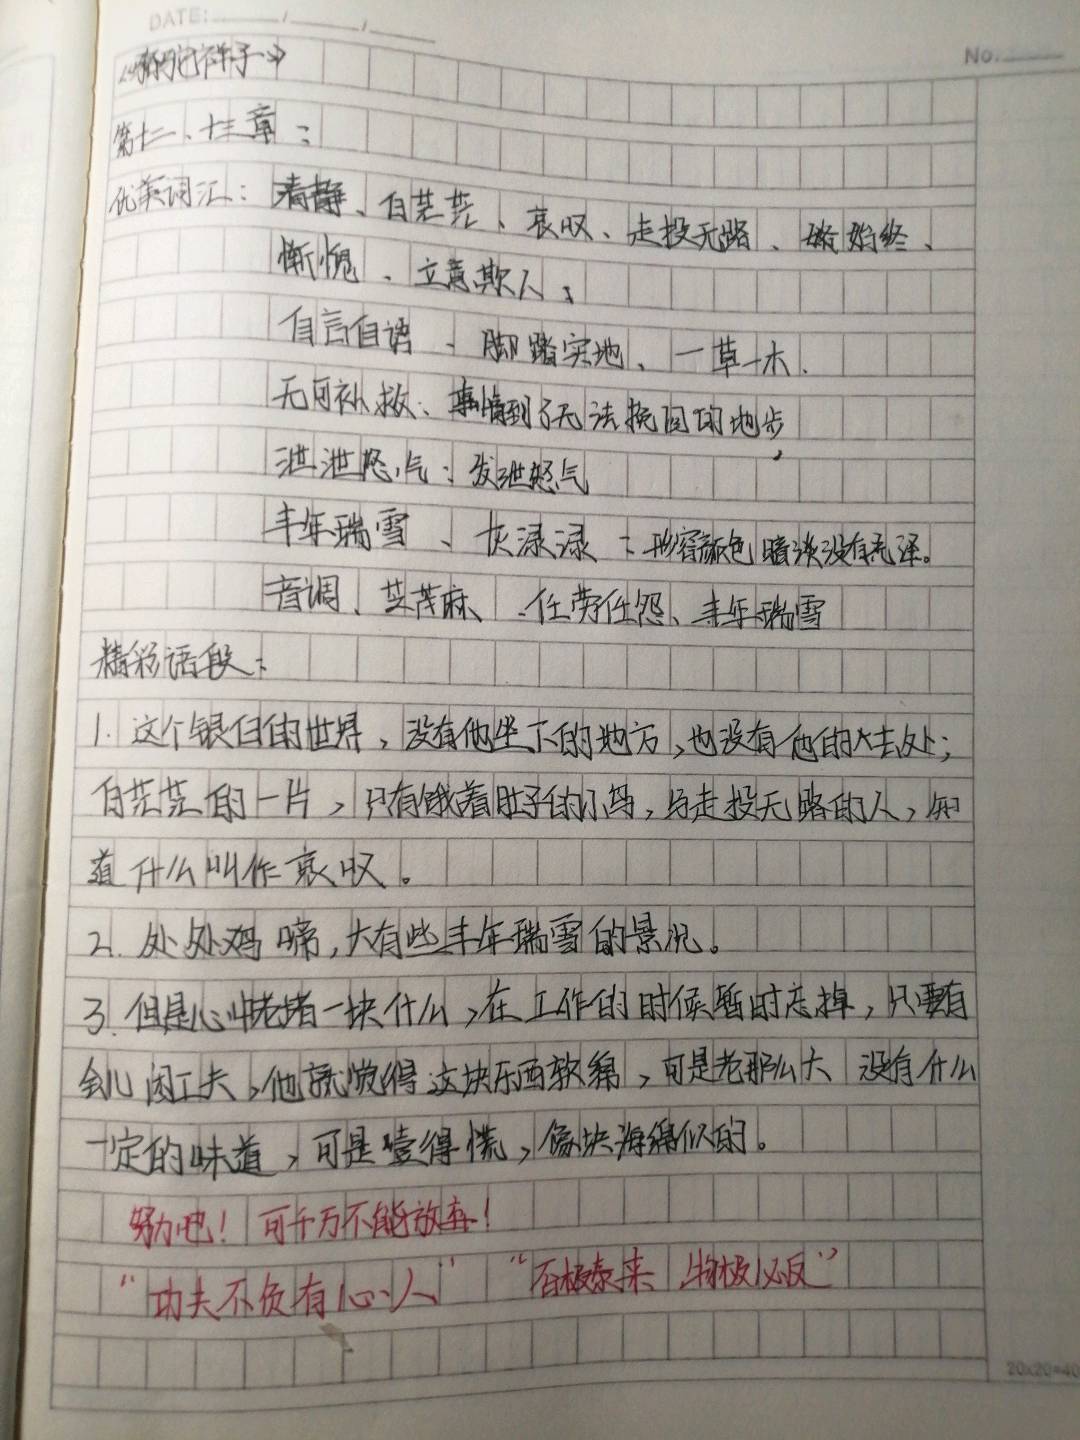 DATE: / /
No.
《骆驼祥子》
第十二、十三章：
优美词汇：清静、白茫茫、哀叹、走投无路、始终、
惭愧、立意欺人、
自言自语、脚踏实地、一草一木、
无可补救：事情到了无法挽回的地步
泄泄怒气：发泄怒气
丰年瑞雪、灰渌渌：形容颜色暗淡没有光泽。
音调、芝茂麻、任劳任怨、丰年瑞雪
精彩语段：
1.这个银白的世界，没有他坐下的地方，也没有他的去处；
白茫茫的一片，只有饿着肚子的小鸟，与走投无路的人，知
道什么叫作哀叹。
2.处处鸡啼，大有些丰年瑞雪的景况。
3.但是心中老堵一块什么，在工作的时候暂时忘掉，只要有
会儿闲工夫，他就觉得这块东西软绵，可是老那么大 没有什么
一定的味道，可是噎得慌，像块海绵似的。
努力吧！可千万不能放弃！
“功夫不负有心人” “否极泰来 物极必反”
20x20=40